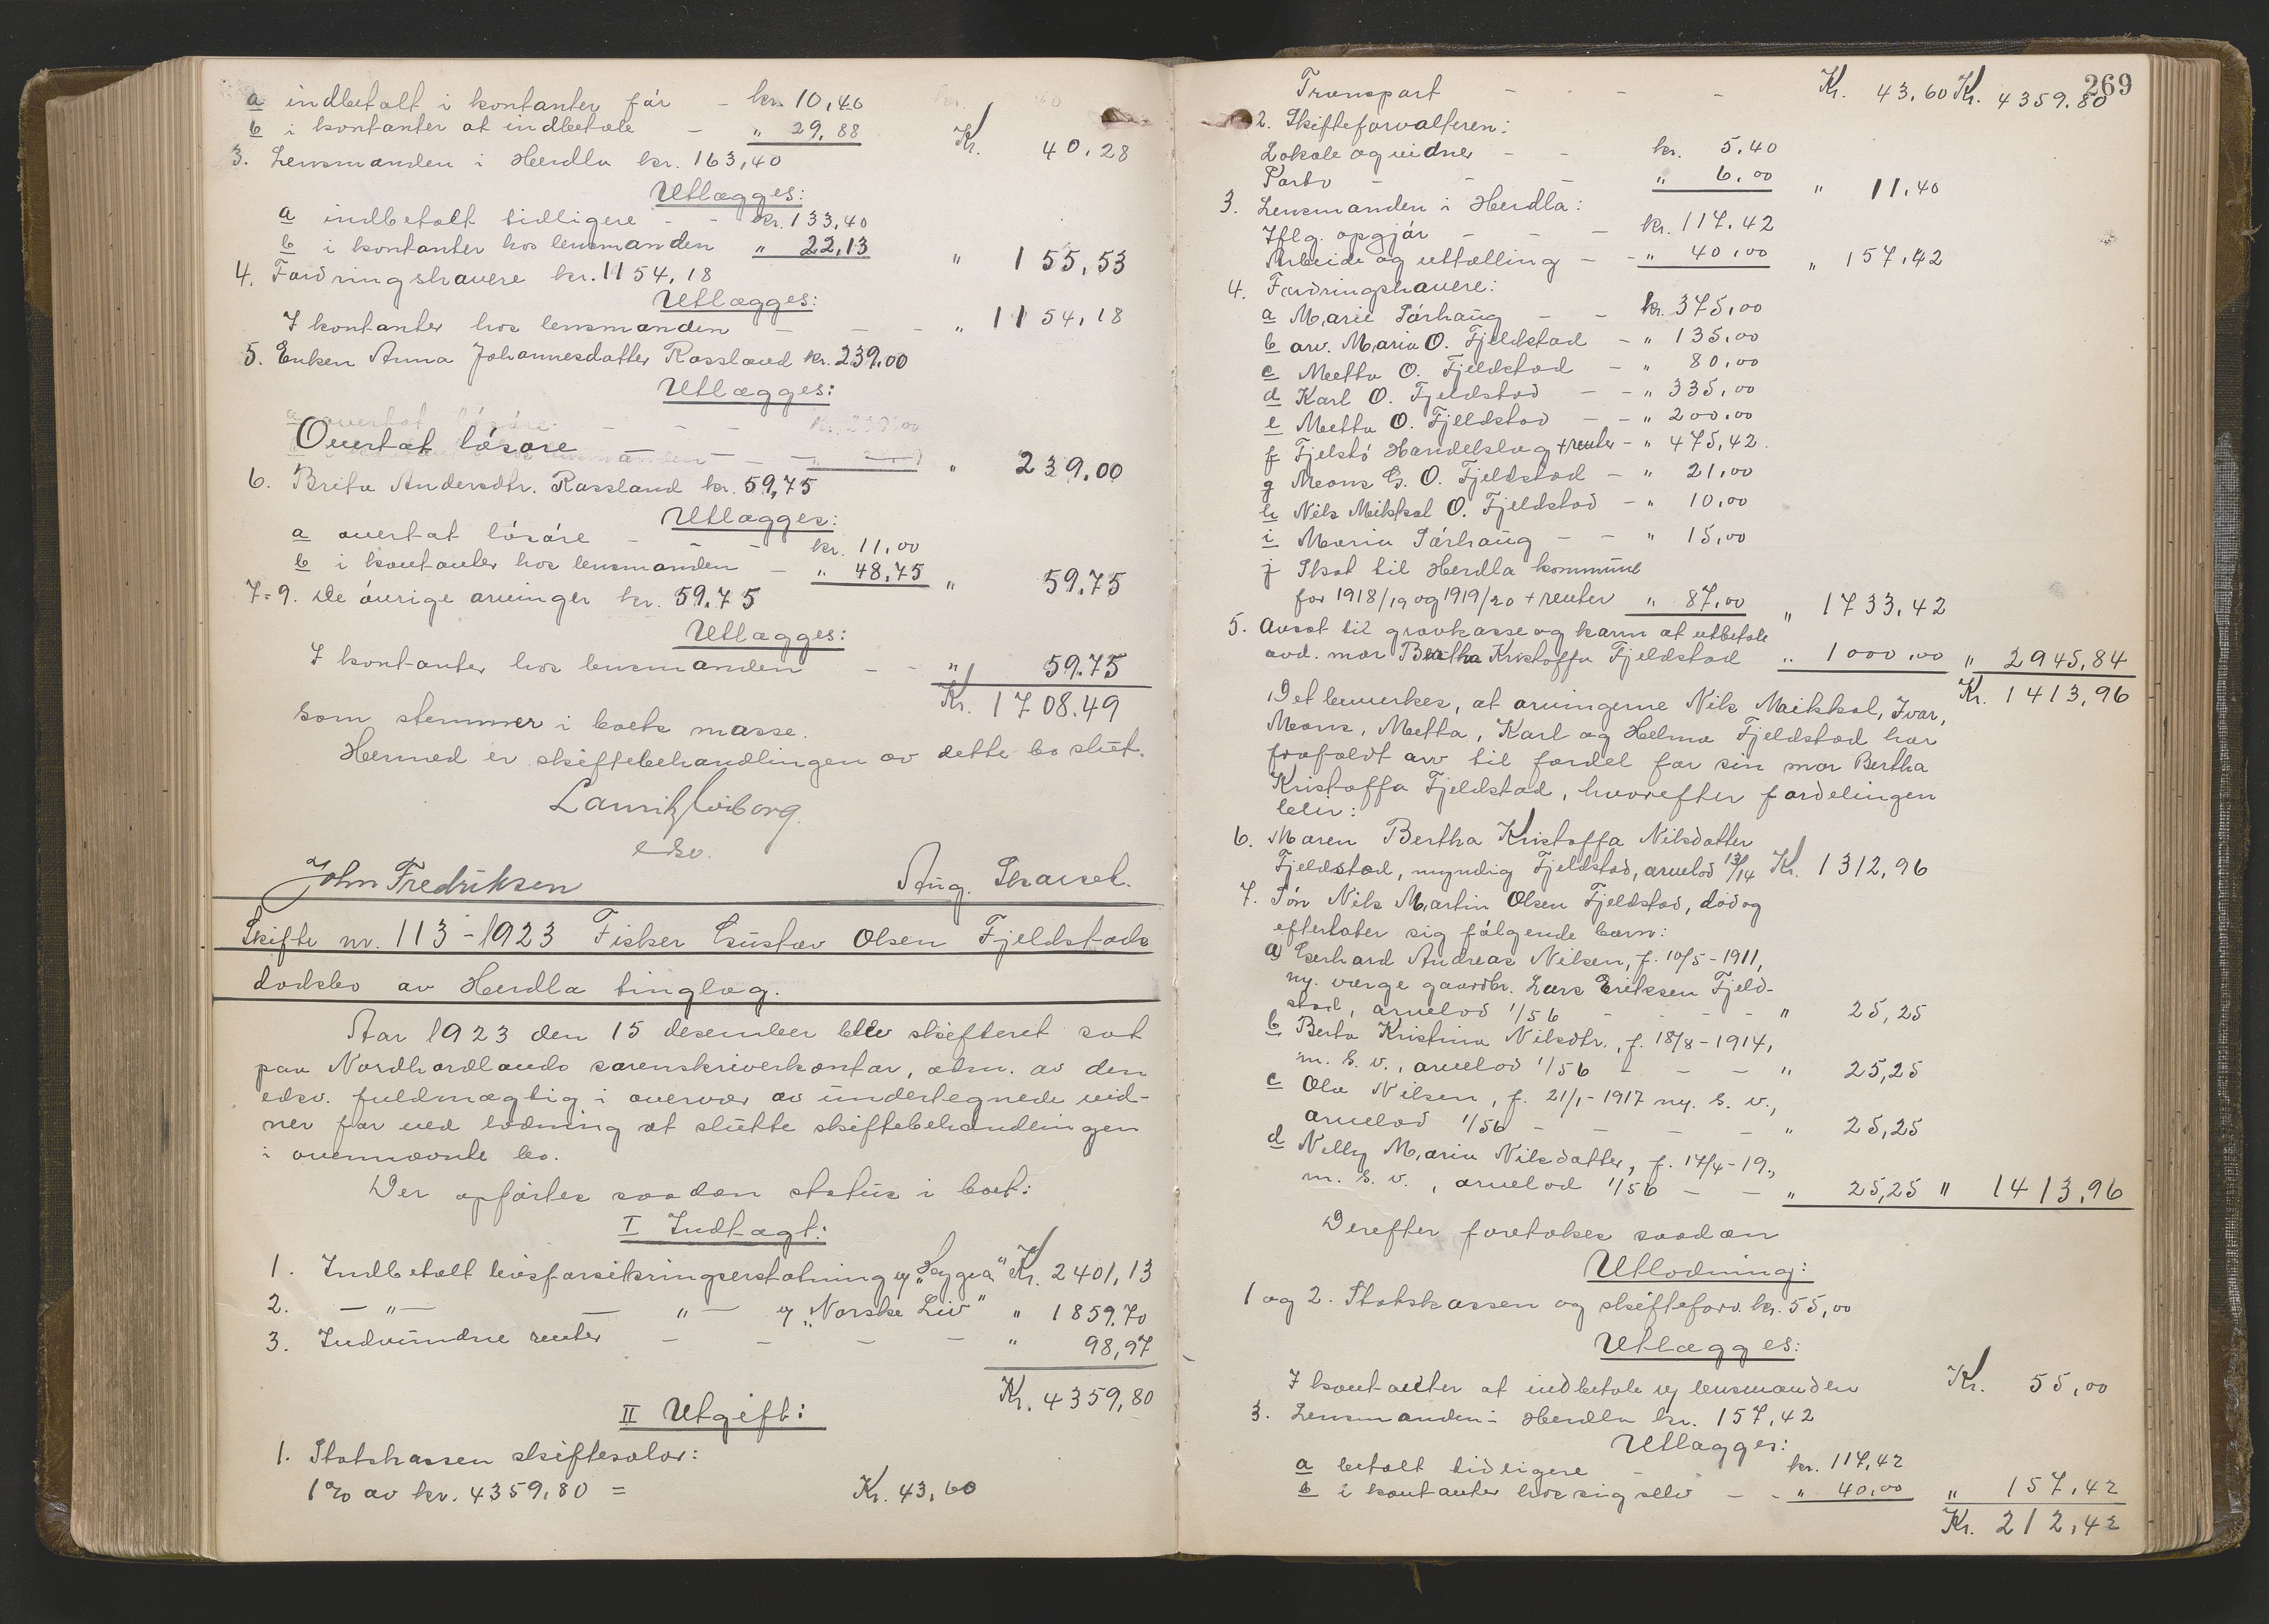 a indbetalt i kontanter før - kr. 10,40
b i kontanter at indbetale - " 29,88 Kr. 40,28
3. Lensmanden i Herdla kr. 163,40
Utlægges:
a indbetalt tidligere - - kr. 133,40
b i kontanter hos lensmanden " 22,13 " 155,53
4. Fordringshavere kr. 1154,18
Utlægges:
I kontanter hos lensmanden - - - " 1154,18
5. Enken Anna Johannesdatter Rossland kr. 239,00
Utlægges:
Overtat løsøre - - - " 239,00
6. Brita Andersdtr. Rossland kr. 59,75
Utlægges:
a overtat løsøre - - - kr. 11,00
b i kontanter hos lensmanden - " 48,75 " 59,75
7-9. De øvrige arvinger kr. 59,75
Utlægges:
I kontanter hos lensmanden - - " 59,75
Kr. 1708,49
som stemmer i boets masse.
Hermed er skiftebehandlingen av dette bo slut.
Lauritz Wiborg.
edsv.
John Fredriksen Aug.
Skifte nr. 113-1923 Fisker Gustav Olsen Fjeldstads
dødsbo av Herdla tinglag.
Aar 1923 den 15 desember blev skifteret sat
paa Nordhordlands sorenskriverkontor, adm. av den
edsv. fuldmægtig i overvær av undertegnede vid-
ner for ved lodning at slutte skiftebehandlingen
i ovennævnte bo.
Der opførtes saadan status i boet:
I Indtægt:
1. Indbetalt livsforsikringserstatning gj. "Kr. 2401,13
2. - " - - " - gj. "Norske Liv" " 1859,70
3. Indvundne renter - - - - " 98,97
Kr. 4359,80
II Utgift:
1. Statskassen skiftesalær:
1% av kr. 4359,80 = Kr. 43,60
269
Transport - - - Kr. 43,60 Kr. 4359,80
2. Skifteforvalteren:
Lokale og vidner - - kr. 5,40
Porto - - - " 6,00 " 11,40
3. Lensmanden i Herdla:
Iflg. opgjør - - - kr. 117,42
Arbeide og uttælling - - " 40,00 " 157,42
4. Fordringshavere:
a Marie Tórhaug - - kr. 375,00
b arv. Maria O. Fjeldstad - " 135,00
c Metta O. Fjeldstad - " 80,00
d Karl O. Fjeldstad - - " 335,00
e Metta O. Fjeldstad - - " 200,00
f Fjelstó Handelslag + renter - " 475,42
g Mons G. O. Fjeldstad - " 21,00
h Nils Mikkal O. Fjeldstad - " 10,00
i Maria Tórhaug - - " 15,00
j Skat til Herdla kommune
for 1918/19 og 1919/20 + renter " 87,00 " 1733,42
5. Avsat til gravkasse og karm at utbetale
avd. mor Bertha Kristoffa Fjeldstad " 1000,00 " 2945,84
Kr. 1413,96
Det bemerkes, at arvingerne Nils Meikkal, Ivar,
Mons, Metta, Karl og Helma Fjeldstad har
frafaldt arv til fordel for sin mor Bertha
Kristoffa Fjeldstad, hvorefter fordelingen
blir:
6. Moren Bertha Kristoffa Nilsdatter
Fjeldstad, myndig Fjeldstad, arvelod 13/14 Kr. 1312,96
7. Søn Nils Martin Olsen Fjeldstad, død og
efterlater sig følgende barn:
a) Gerhard Andreas Nilsen, f. 10/5-1911,
m. verge gaardbr. Lars Eriksen Fjeld-
stad, arvelod 1/56 - - - - " 25,25
b Berta Kristina Nilsdtr., f. 18/8-1914,
m. s. v., arvelod 1/56 - - - " 25,25
c Ola Nilsen, f. 21/1-1917 m. s. v.,
arvelod 1/56 - - - - " 25,25
d Nelly Maria Nilsdatter, f. 17/4-19.,
m. s. v., arvelod 1/56 - - " 25,25 " 1413,96
Derefter foretokes saadan
Utlodning:
1 og 2. Statskassen og skifteforv. kr. 55,00
Utlægges:
I kontanter at indbetale gj. lensmanden Kr. 55,00
3. Lensmanden i Herdla kr. 157,42
Utlægges:
a betalt tidligere - kr. 117,42
b i kontanter hos sig selv - - " 40,00 " 157,42
Kr. 212,42